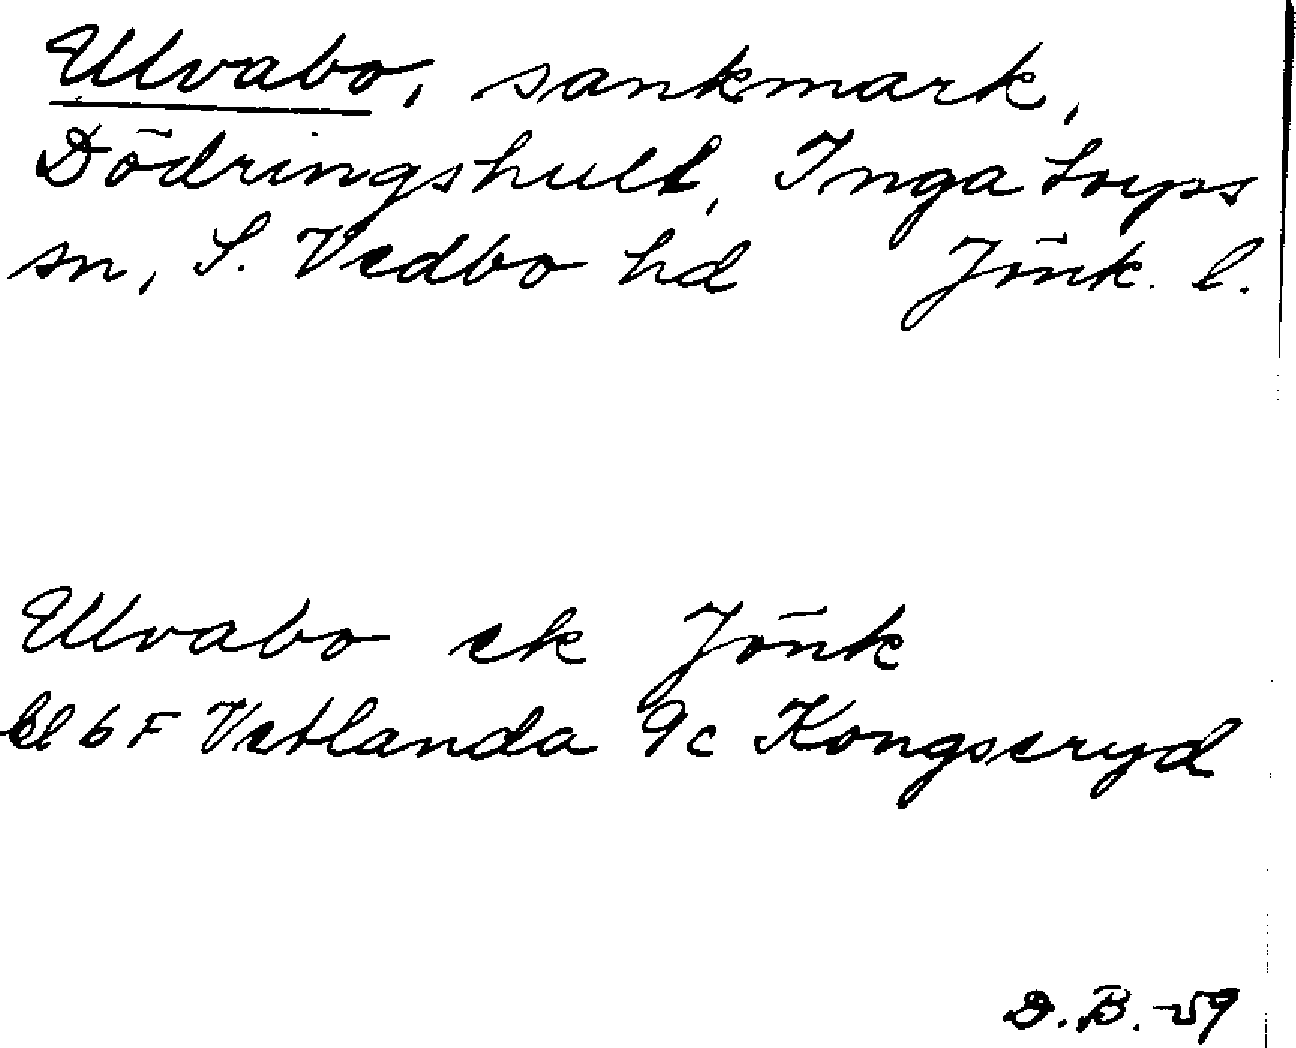 Ulvabo, sankmark,
Dödringshult, Ingatorps
sn, S. Vedbo hd Jönk. l.
Ulvabo ek Jönk
bl 6 F Vetlanda 9c Kongseryd
D. B. -59